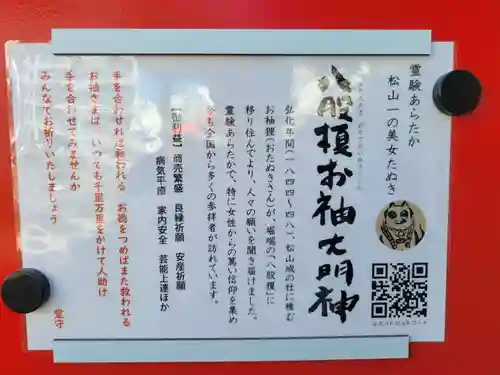 霊験あらたか
松山一の美女たぬき
八股榎お袖大明神
弘化年間(一八四四～四八)松山城の杜に棲む
お袖狸(おたぬきさん)が、堀端の「八股榎」に
移り住んでより、人々の願いを聞き届けました。
霊験あらたかで、特に女性からの篤い信仰を集め
今も全国から多くの参拝者が訪れています。
【御利益】商売繁盛 良縁祈願 安産祈願
病気平癒 家内安全 芸能上達ほか
手を合わせれば救われる お袖をつめばまた救われる
お袖さまは いつでも千里万里をかけて人助け
手を合わせてみませんか
みんなでお祈りいたしましょう
堂守